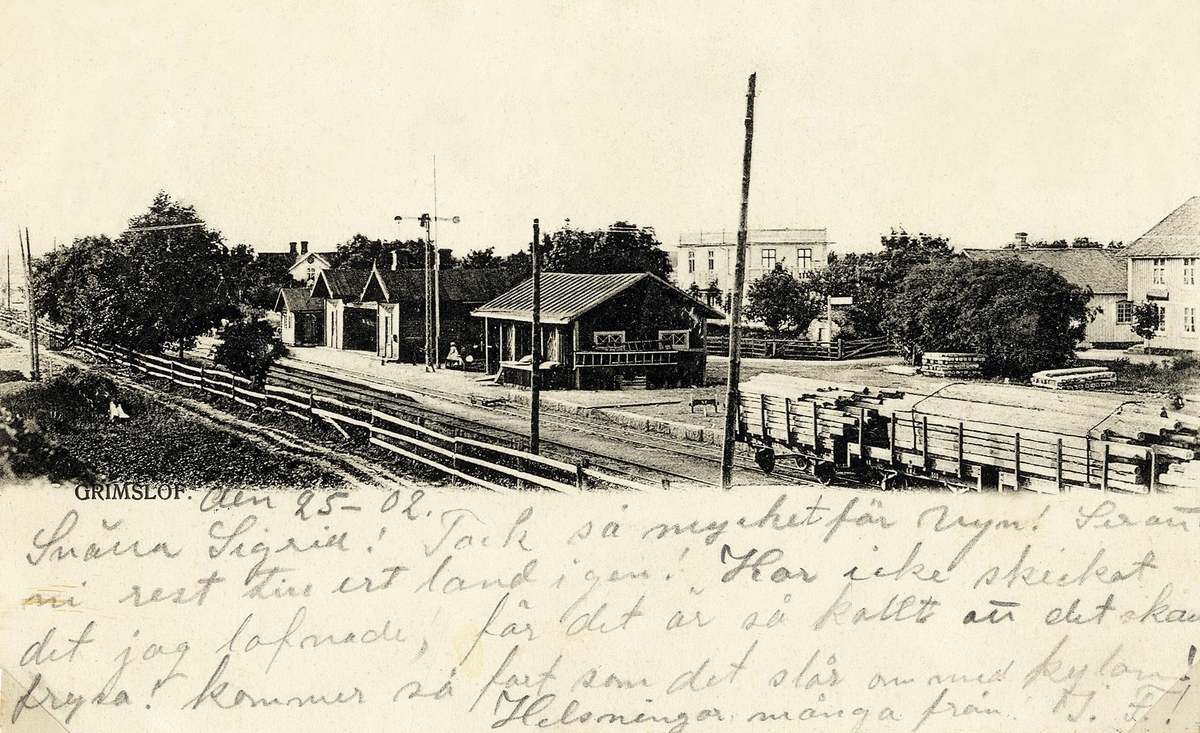 GRIMSLÖF. den 25 - 02.
Snälla Sigrid! Tack så mycket för Vyn! Ser att
ni rest till ert land igen! Har icke skickat
det jag lofvade, för det är så kallt att det skall
frysa! kommer så fort som det slår om med kylan!
Helsningar många från J. F.!